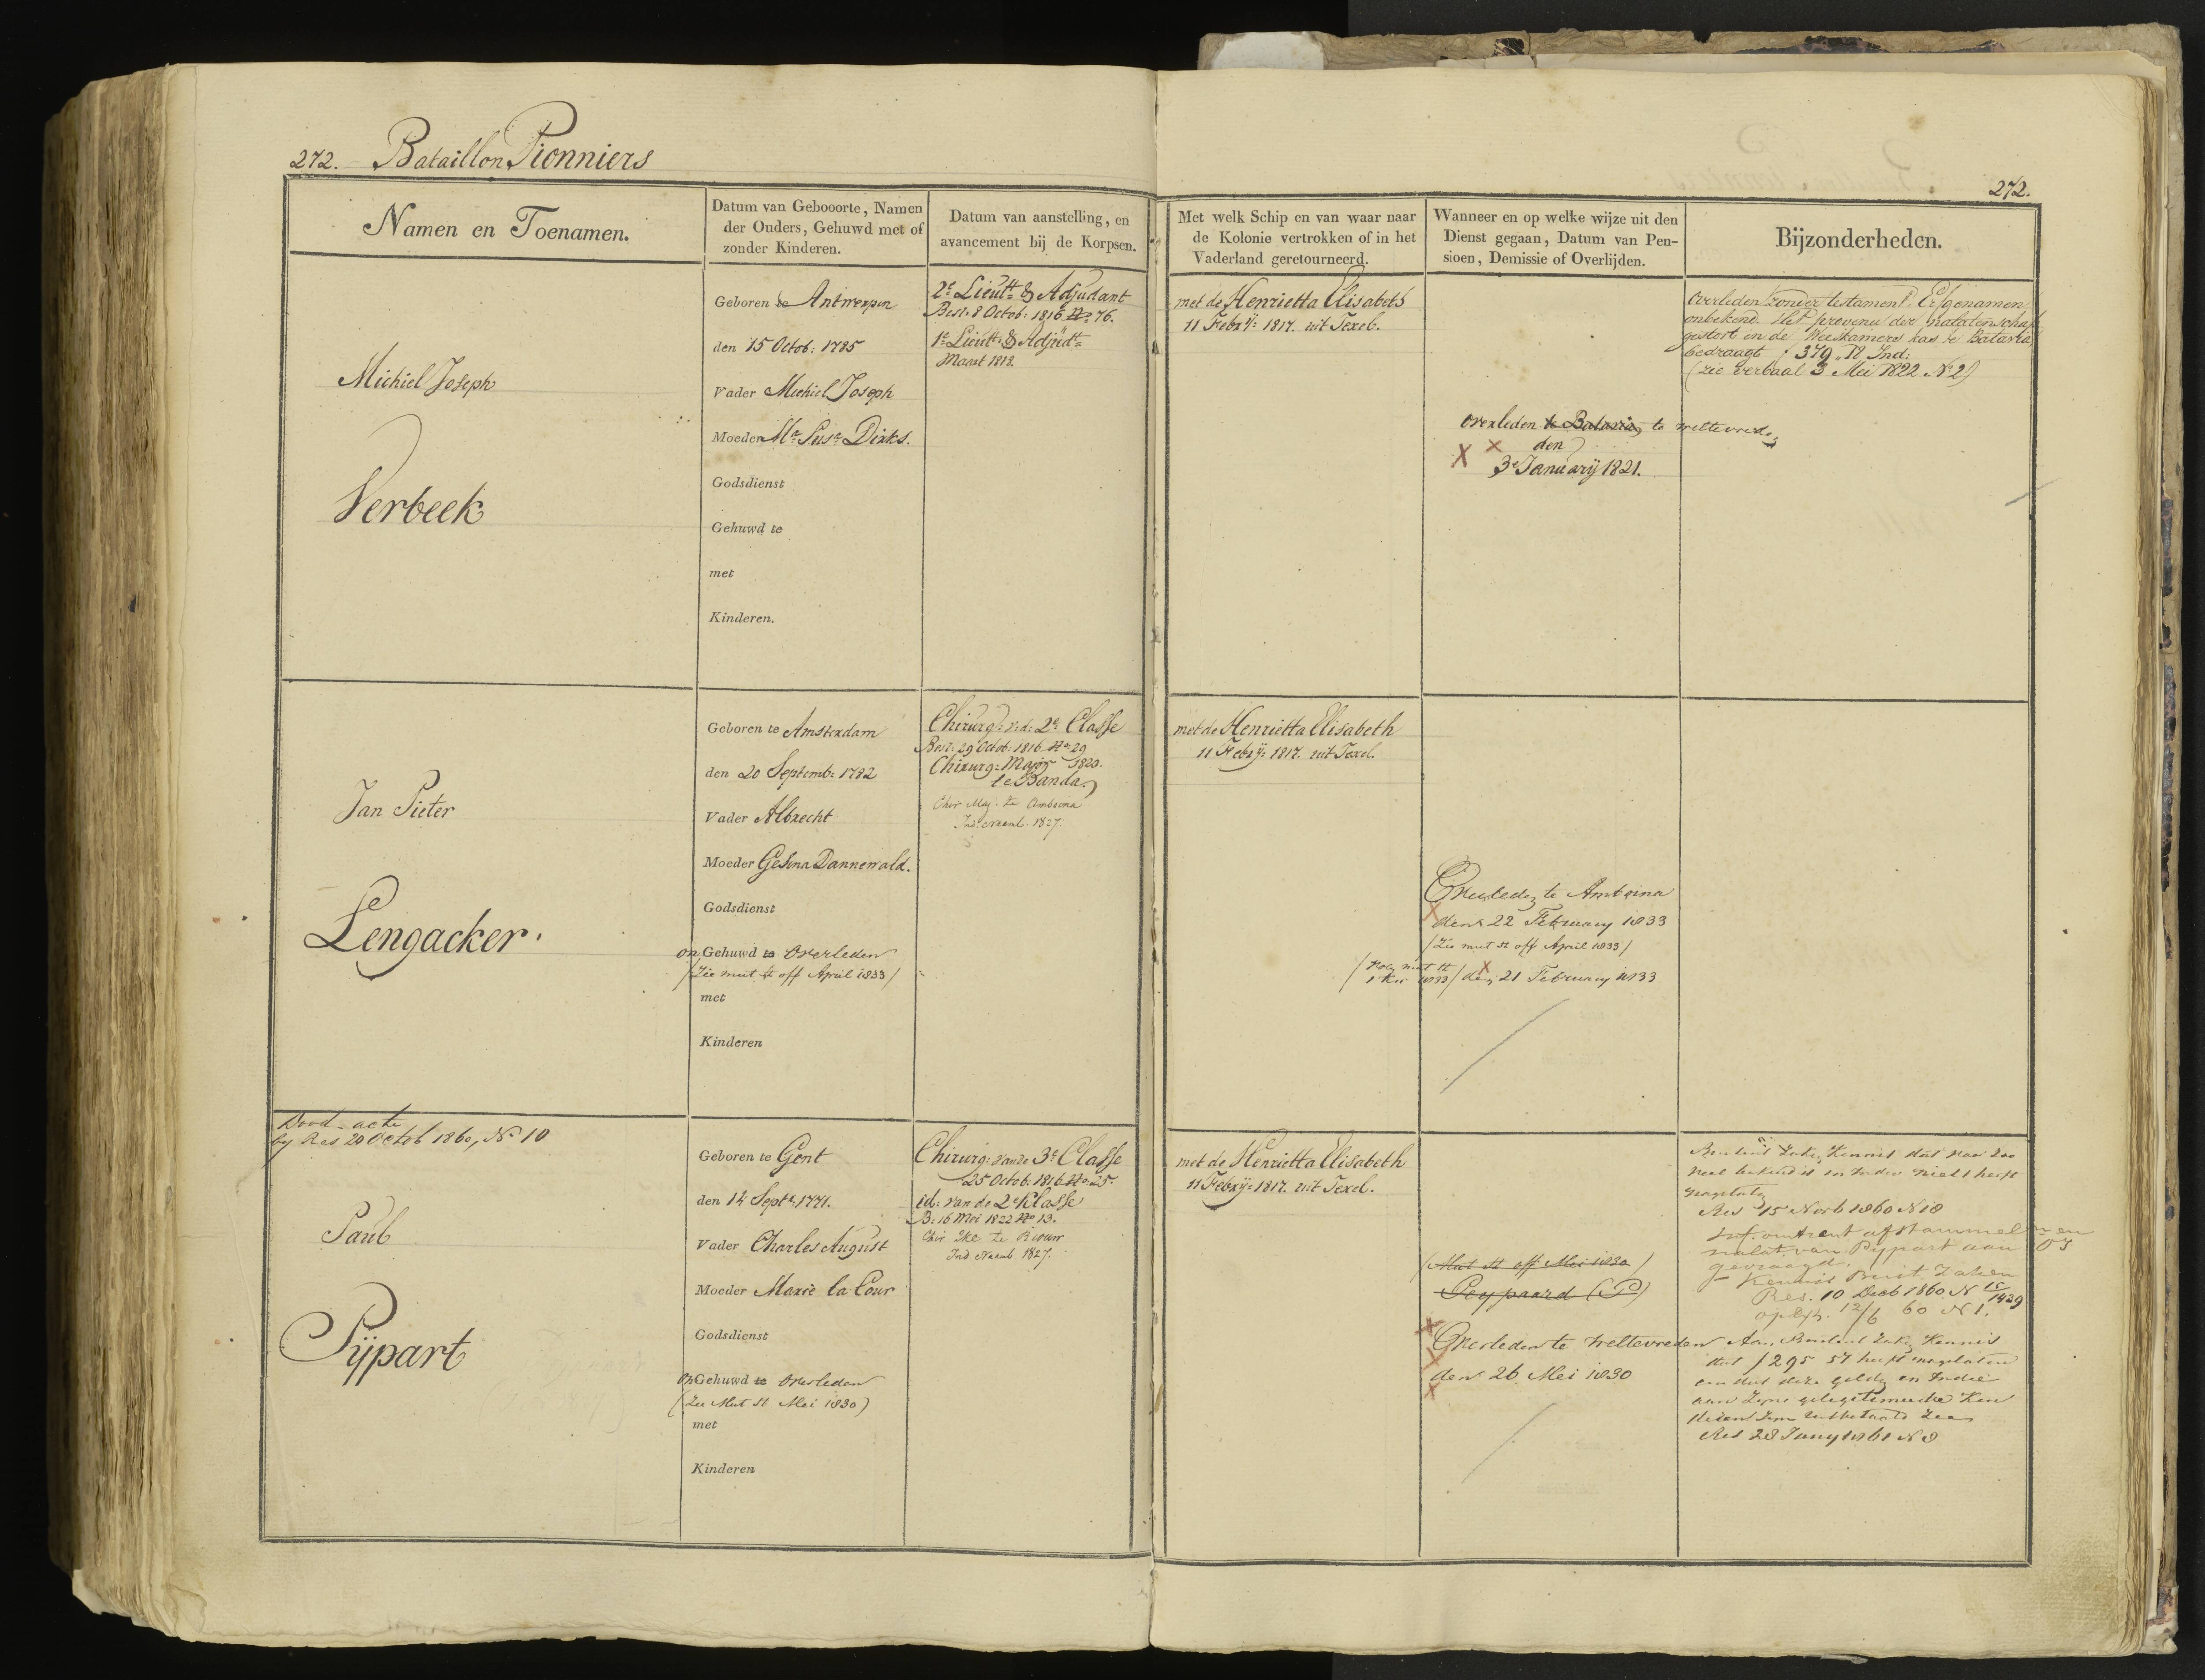 272. Bataillon Pionniers
272.
Namen en Toenamen.
Datum van Gebooorte, Namen
der Ouders, Gehuwd met of
zonder Kinderen.
Datum van aanstelling, en
avancement bij de Korpsen.
Met welk Schip en van waar naar
de Kolonie vertrokken of in het
Vaderland geretourneerd.
Wanneer en op welke wijze uit den
Dienst gegaan, Datum van Pen-
sioen, Demissie of Overlijden.
Bijzonderheden.
Michiel Joseph
Verbeek
Geboren te Antwerpen
den 15 Octob: 1785
Vader Michiel Joseph
Moeder Ma: Susa: Dirks.
Godsdienst
Gehuwd te
met
Kinderen.
2e Lieutt: & Adjudant
Besl: 8 Octob: 1816 No: 76.
1e Lieutt: & Adjudt=
Maart 1818.
met de Henrietta Elisabeth
11 Febry: 1817. uit Texel.
overleden te Batavia, te weltevreden
den
3e January 1821.
Overleden zonder testament. Erfgenamen
onbekend. Het provenu der nalatenschap
gestort in de Weeskamers kas te Batavia
bedraagt f 379.18 Ind:
(zie verbaal 3 Mei 1822 No 2)
Jan Pieter
Lengacker.
Geboren te Amsterdam
den 20 Septemb: 1782
Vader Albrecht
Moeder Gesina Dannenwald.
Godsdienst
on Gehuwd te Overleden
/Zie mut st off April 1833/
met
Kinderen
Chirurg: v:d: 2e Classe
Besl: 29 Octob: 1816 No: 29
Chirurg: Majoor 1820.
te Banda.
Chir Maj. te Amboina
Ind: Naaml. 1827.
met de Henrietta Elisabeth
11 Febry: 1817. uit Texel.
Overleden te Amboina
den 22 February 1833
/Zie mut st off April 1833/
1833/ den 21 February 1833
Dood-acte
by Res 20 Octob 1860, No 10
Paul
Pijpart
Geboren te Gent
den 14 Septr: 1771.
Vader Charles August
Moeder Marie la Cour
Godsdienst
on Gehuwd te Overleden
(Zie Mut st Mei 1830)
met
Kinderen
Chirurg: van de 3e Classe
25 Octob: 1816 No: 25.
id: van de 2e Klasse
B: 16 Mei 1822 No 13.
Chir 2Kl te
Ind Naaml. 1827.
met de Henrietta Elisabeth
11 Febry: 1817. uit Texel.
(Mut st off Mei 1830)
Peypaard (P)
Overleden te Weltevreden
den 26 Mei 1830
Kennis dat
niet bekend is in Indie niets heeft
nagelaten
Res 15 Novb 1860 N 18
Inf. omtrent afstammelingen en
nalat. van Pijpart aan
gevraagd.
Kennis Buit Zaken
Res. 10 Decb 1860 N 15/1429
12/6 60 N 1.
Aan Kennis
dat f 295 57 heeft nagelaten
en dat deze gelden in Indie
aan zijne
Res 28 Jany 1861 N 8